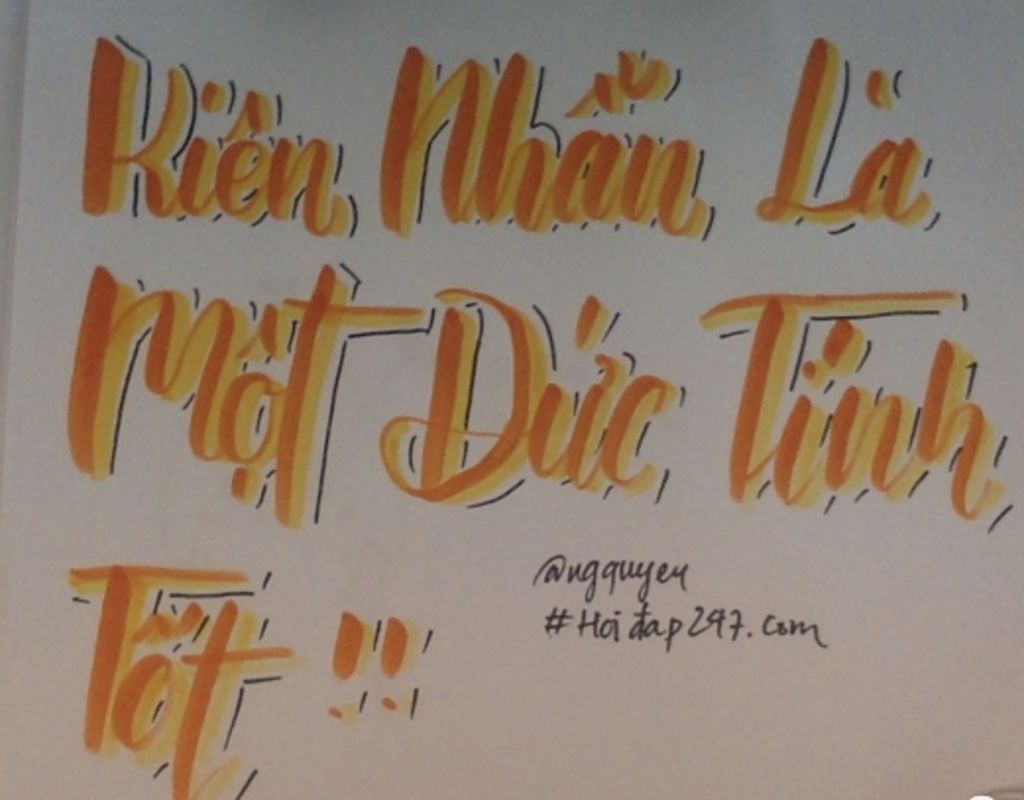 Kiên Nhẫn Là
Một Đức Tính
Tốt !!
@ngquyen
#Hoidap247.com